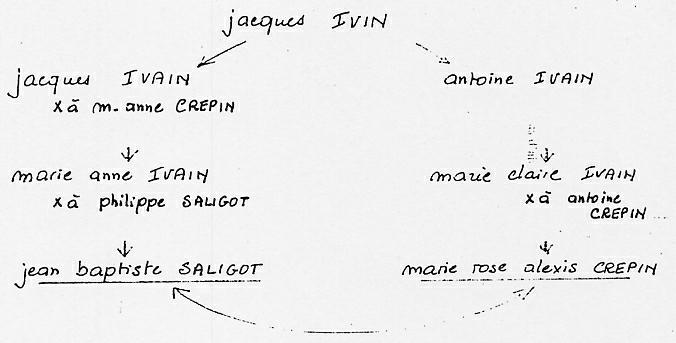 jacques IVIN
jacques IVAIN
x à m. anne CREPIN
marie anne IVAIN
x à philippe SALIGOT
jean baptiste SALIGOT
antoine IVAIN
marie claire IVAIN
x à antoine
CREPIN ...
marie rose alexis CREPIN